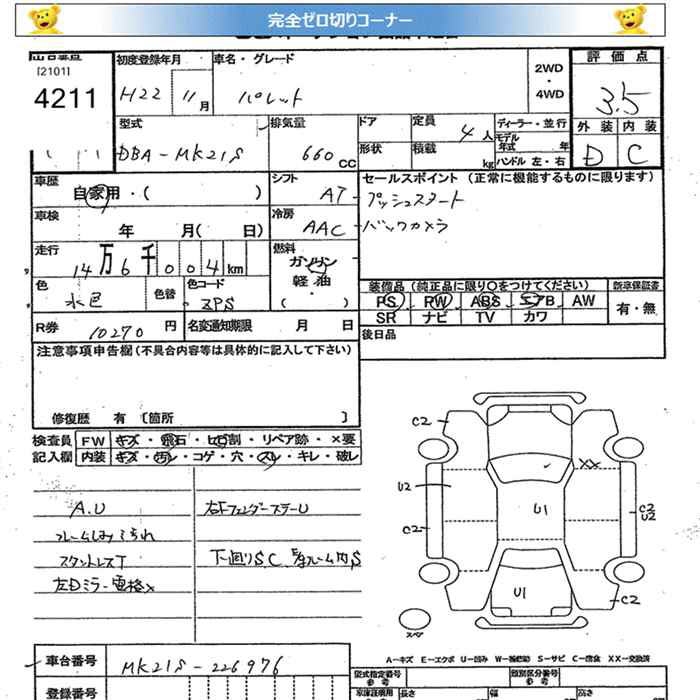 完全ゼロ切りコーナー
[2101]
4211
初度登録年月
H22 11月
車名・グレード
パレット
2WD
・
4WD
評価点
3.5
外装 内装
D C
型式
DBA-MK21S
排気量
660cc
ドア
形状
定員
4人
積載
kg
ディーラー・並行
モデル年式 年
ハンドル 左・右
車歴
自家用・( )
シフト
AT
セールスポイント (正常に機能するものに限ります)
プッシュスタート
バックカメラ
車検
年 月( 日)
冷房
AAC
走行
14万6千004km
燃料
ガソリン
軽油
・( )
色
水色
色替
色コード
ZPS
装備品(純正品に限り○をつけてください)
PS PW ABS エアB AW
SR ナビ TV カワ
新車保証書
有・無
R券 10270円
名変通知期限 月 日
後日品
注意事項申告欄(不具合内容等は具体的に記入して下さい)
修復歴 有 [箇所 ]
検査員
記入欄
FW キズ・飛石・ヒビ割・リペア跡・×要
内装 キズ・汚レ・コゲ・穴・スレ・キレ・破レ
A.U
スタントレスT
左Dミラー電格×
下廻りS,C
C2
U2
C2
XX
U1
C2
U2
U1
C2
スペア
A－キズ E－エクボ U－凹み W－補修跡 S－サビ C－腐食 XX－交換済
車台番号
MK21S-226976
登録番号
型式指定番号
参考
類別区分番号
参考
長さ 幅 高さ